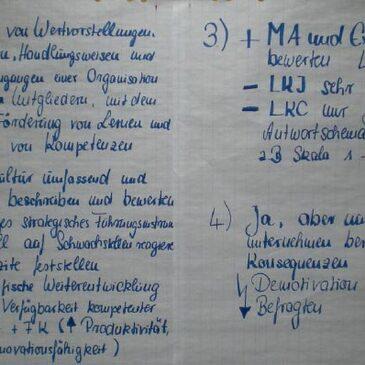 von Wertvorstellungen,
Handlungsweisen und
einer Organisation
Mitgliedern, mit dem
Förderung von Lernen und
von Kompetenzen
umfassend und
beschreiben und bewerten
strategisches Führungsinstrum
auf Schwachstellen reagiere
feststellen
Weiterentwicklung
Verfügbarkeit kompetenter
+ FK (↑ Produktivität,
novationsfähigkeit)
3) + MA und
bewerten
- LKI sehr
- LKC nur
Antwortschema
zB Skala 1 -
4) Ja, aber nu
unternehmen ber
Konsequenzen
↯ Demotivation
Befragten